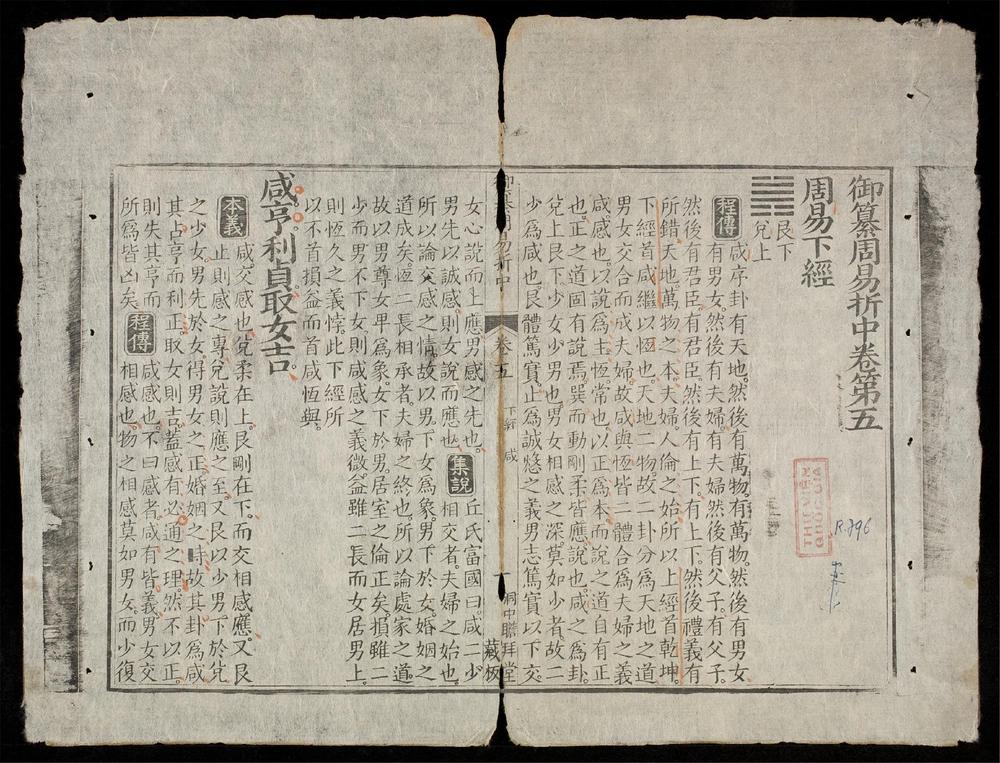 御纂周易折中卷第五
周易下經
艮下
兌上
程傳
咸序卦有天地。然後有萬物。有萬物。然後有男女
有男女。然後有夫婦。有夫婦然後有父子。有父子。
然後有君臣有君臣。然後有上下。有上下。然後禮義有
所錯天地。萬物之本。夫婦。人倫之始所以上經首乾坤。
下經首咸繼以恆也。天地二物。故二卦分爲天地之道
男女交合而成夫婦。故咸與恆皆二體合爲夫婦之義
咸感也。以說爲主恆。常也。以正爲本。而說之道自有正
也。正之道固有說焉。巽而動。剛柔皆應。說也。咸之爲卦。
兌上艮下。少女少男也。男女相感之深。莫如少者。故二
少爲咸也。艮體篤實。止爲誠慤之義。男志篤實以下交。
御纂周易折中 卷五 下經 咸 一
拜堂藏板
女心說而上應男。感之先也。
男先以誠感。則女說而應也。
集說
丘氏富國曰。咸二少
相交者。夫婦之始也。
所以論交感之情。故以男下女爲象。男下於女。婚姻之
道成矣。恆二長相承者。夫婦之終也。所以論處家之道。
故以男尊女卑爲象。女下於男。居室之倫正矣。損雖二
少而男不下女。則咸感之義微。益雖二長而女居男上。
則恆久之義悖。此下經所
以不首損益而首咸恆與。
咸亨。利貞。取女吉。
本義
咸。交感也。兌柔在上。艮剛在下。而交相感應。又艮
止則感之專。兌說則應之至。又艮以少男下於兌
之少女。男先於女。得男女之正。婚姻之時。故其卦爲咸
其占亨而利正。取女則吉。蓋感有必通之理。然不以正。
則失其亨。而
所爲皆凶矣。
程傳
咸感也。不曰感者。咸有皆義。男女交
相感也。物之相感莫如男女。而少復
R.796